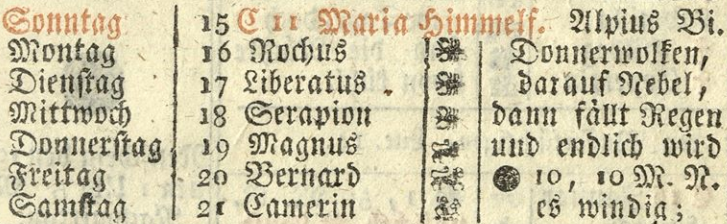 Sonntag 15 C 11 Maria Himmelf. Alpius Bi.
Montag 16 Rochus Donnerwolken,
Dienstag 17 Liberatus. darauf Nebel,
Mittwoch 18 Serapion dann fällt Regen
Donnerstag 19 Magnus und endlich wird
Freitag 20 Bernard 10, 10 M. N.
Samstag 21 Camerin es windig;